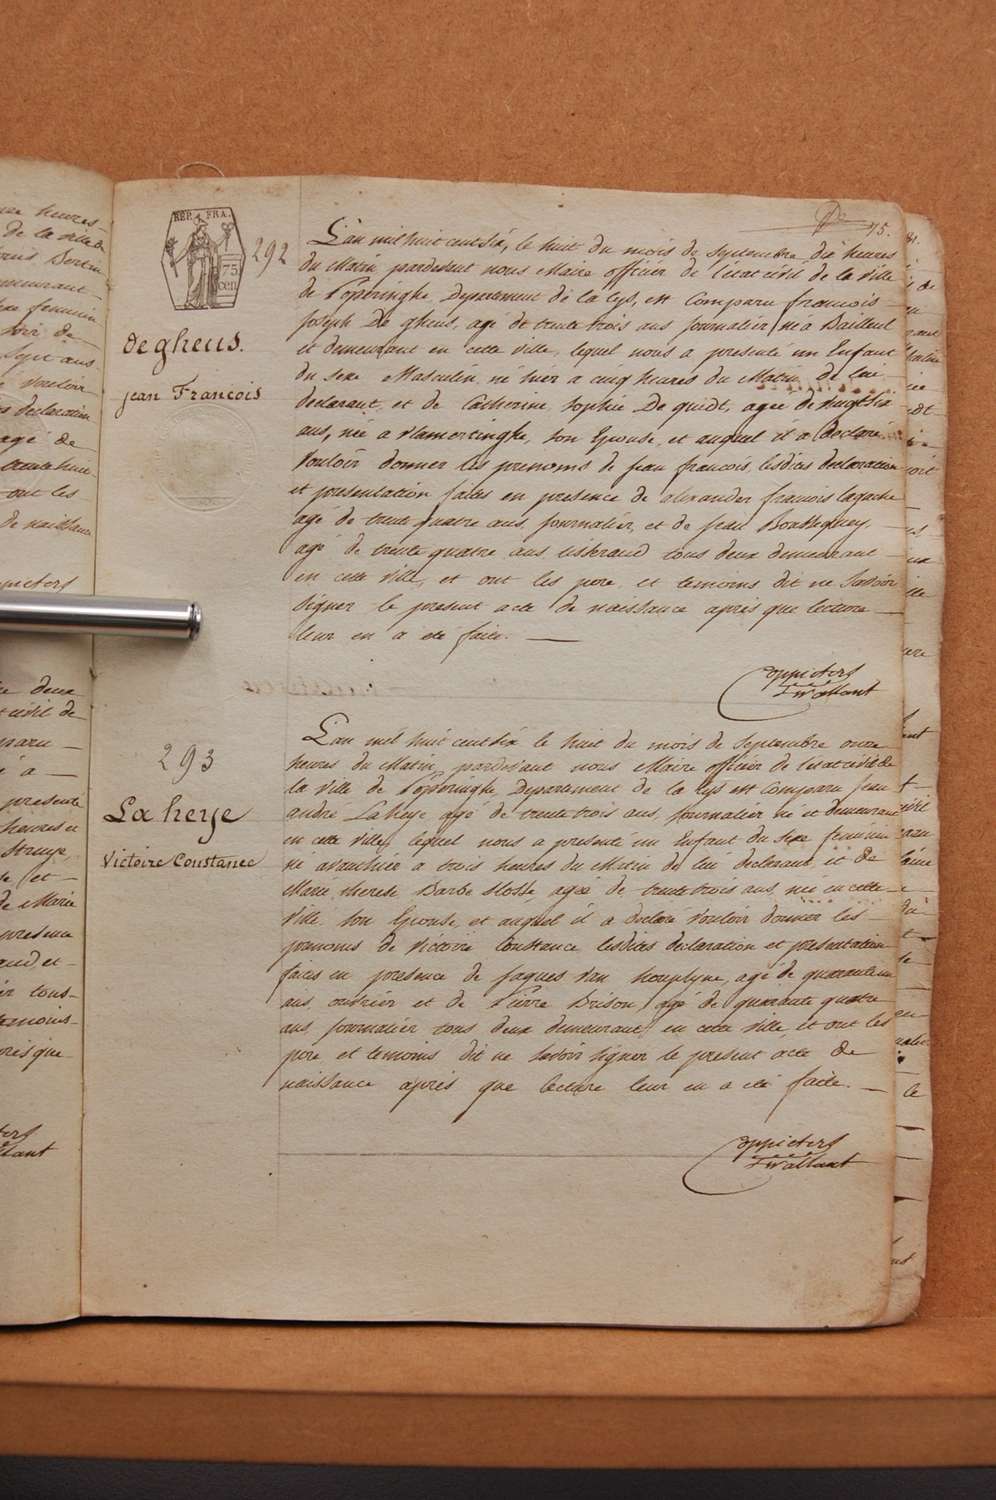 75.
REP. FRA.
75
cen
292
Degheus.
Jean François
L'an mil huit cent six, le huit du mois de Septembre dix heures
du Matin pardevant nous Maire officier de l'état civil de la ville
de Poperinghe, Departement de la Lys, est Comparu francois
Joseph De gheus, agé de trente trois ans journalier né a Bailleul
et demeurant en cette ville, lequel nous a presenté un Enfant
du sexe Masculin, né hier a cinq heures du Matin de lui
declarant, et de Catherine Sophie De quidt, agée de vingt six
ans, née a Vlamertinghe, son Epouse, et auquel il a declaré
vouloir donner les prenoms de Jean francois, lesdites declaration
et presentation faites en presence de alexander francois Lagache
agé de trente quatre ans, journalier, et de Jean
agé de trente quatre ans tisserand tous deux demeurant
en cette ville, et ont les pere et temoins dit ne Savoir
signer le present acte de naissance après que lecture
leur en a été faite.
293
La heye
Victoire Constance
L'an mil huit cent six le huit du mois de Septembre onze
heures du Matin pardevant nous Maire officier de l'état civil de
la ville de Poperinghe, Departement de la Lys est Comparu Jean
andré La heye agé de trente trois ans, journalier né et demeurant
en cette ville, lequel nous a presenté un Enfant du sexe feminin
né avanthier a trois heures du Matin de lui declarant et de
Marie therese Barbe agée de trente trois ans, née en cette
ville son Epouse, et auquel il a declaré vouloir donner les
prenoms de Victoire Constance lesdites declaration et presentation
faites en presence de Jaques Van houplyne, agé de quarante un
ans, ouvrier et de Pierre Brison, agé de quarante quatre
ans, journalier tous deux demeurant en cette ville et ont les
pere et temoins dit ne Savoir signer le present acte de
naissance après que lecture leur en a été faite.